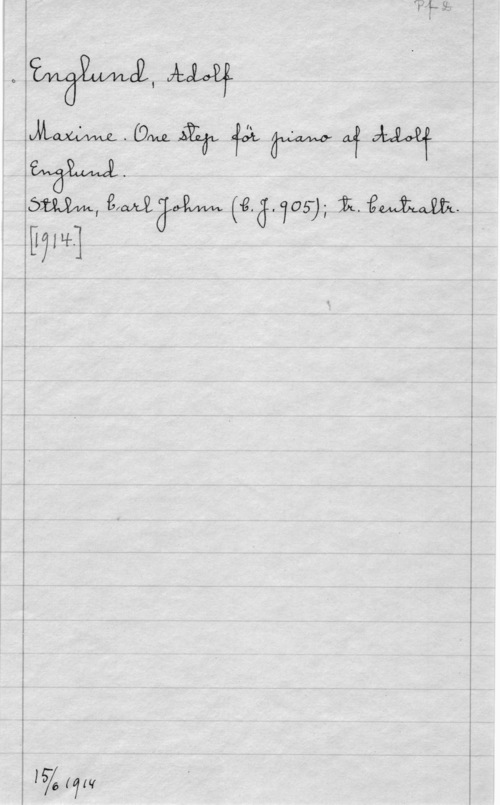 Pf 2
Englund, Adolf
Maxime. One step för piano af Adolf
Englund.
Sthlm, Carl Johnn (C.J. 905); tr. Centraltr.
[1914.]
15/6 1914